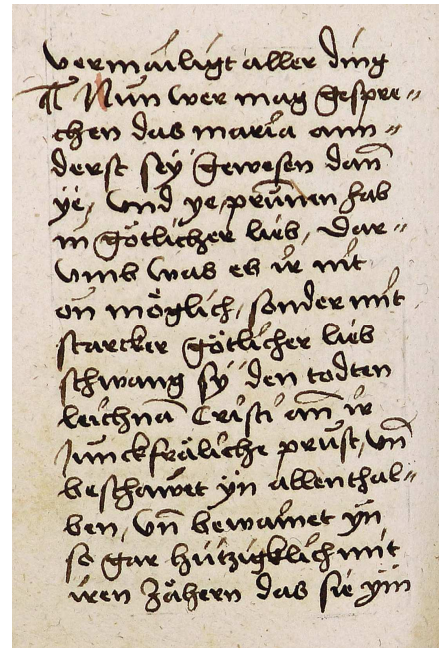 vermailigt aller ding
¶ Nun wer mag gespre〃
chen das maria ann〃
derst sey gewesen dan̄
ye, vnd ye prūnen hab
in götlicher lieb, Dar〃
vmb was es ir nit
on möglich, sonder mit
starcker götlicher lieb
schwang sy den todten
leichnā Cristi am̄ ir
Junckfräliche prust, vn̄
beschawet yn allenthal〃
ben, vn̄ bewainet yn
so gar hützigklich mit
iren zähern das sie ym